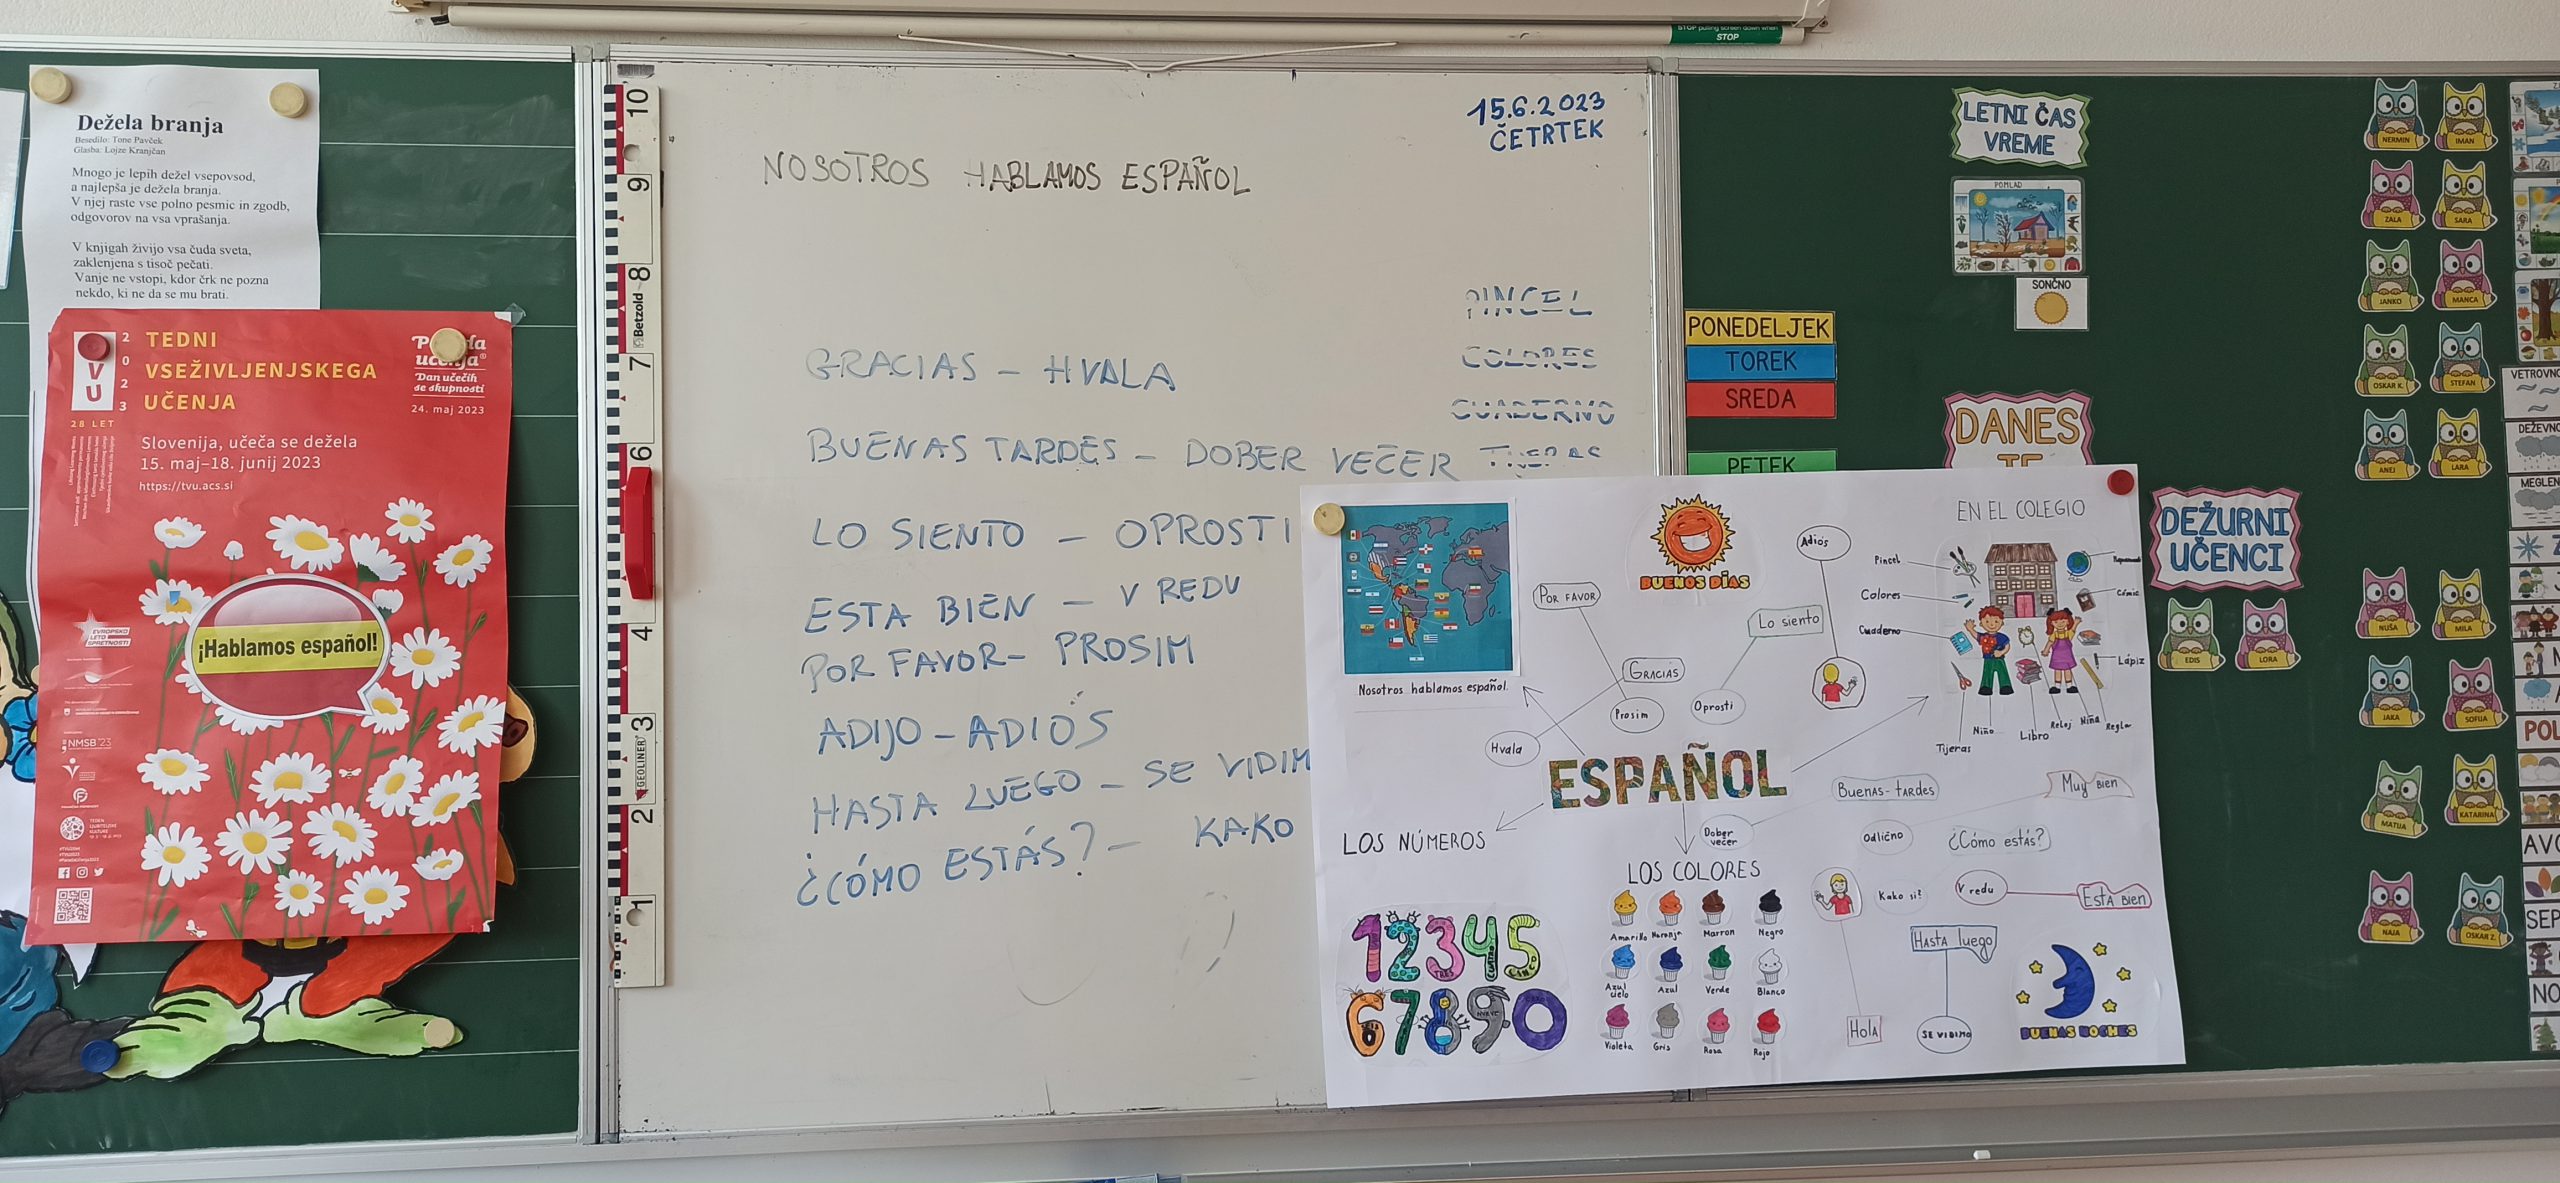 STOP pulling screen down when
STOP
Dežela branja
Besedilo: Tone Pavček
Glasba: Lojze Kranjčan
Mnogo je lepih dežel vsepovsod,
a najlepša je dežela branja.
V njej raste vse polno pesmic in zgodb,
odgovorov na vsa vprašanja.
V knjigah živijo vsa čuda sveta,
zaklenjena s tisoč pečati.
Vanje ne vstopi, kdor črk ne pozna
nekdo, ki ne da se mu brati.
VU
2023
28 LET
TEDNI
VSEŽIVLJENJSKEGA
UČENJA
Dan učečih
se skupnosti
24. maj 2023
Slovenija, učeča se dežela
15. maj–18. junij 2023
https://tvu.acs.si
¡Hablamos español!
EVROPSKO
LETO
SPRETNOSTI
NMSB '23
10
9
8
7
6
4
3
2
1
Betzold
GEOLINER
15.6.2023
ČETRTEK
NOSOTROS HABLAMOS ESPAÑOL
PINCEL
COLORES
CUADERNO
GRACIAS – HVALA
BUENAS TARDES – DOBER VEČER
LO SIENTO – OPROSTI
ESTA BIEN – V REDU
POR FAVOR – PROSIM
ADIJO – ADIÓS
HASTA LUEGO – SE VIDIM
¿CÓMO ESTÁS? – KAKO
Nosotros hablamos español.
BUENOS DÍAS
POR FAVOR
GRACIAS
Prosim
Hvala
Lo siento
Oprosti
Adiós
EN EL COLEGIO
Pincel
Colores
Cuaderno
Cómic
Lápiz
Regla
Niña
Reloj
Libro
Niño
Tijeras
ESPAÑOL
LOS NÚMEROS
1 2 3 4 5
TRES
CINCO
6 7 8 9 0
SEIS
LOS COLORES
Amarillo Naranja Marron Negro
Azul cielo Azul Verde Blanco
Violeta Gris Rosa Rojo
Buenas-tardes
Dober večer
Muy bien
Odlično
¿Cómo estás?
Kako si?
V redu
Esta bien
Hasta luego
SE VIDIMO
Hola
BUENAS NOCHES
LETNI ČAS
VREME
POMLAD
SONČNO
PONEDELJEK
TOREK
SREDA
PETEK
DANES
DEŽURNI
UČENCI
EDIS
LORA
NERMIN
IMAN
ZALA
SARA
JANKO
MANCA
OSKAR K.
STEFAN
ANEJ
LARA
NUŠA
MILA
JAKA
SOFIJA
MATIJA
KATARINA
NAJA
OSKAR Z.